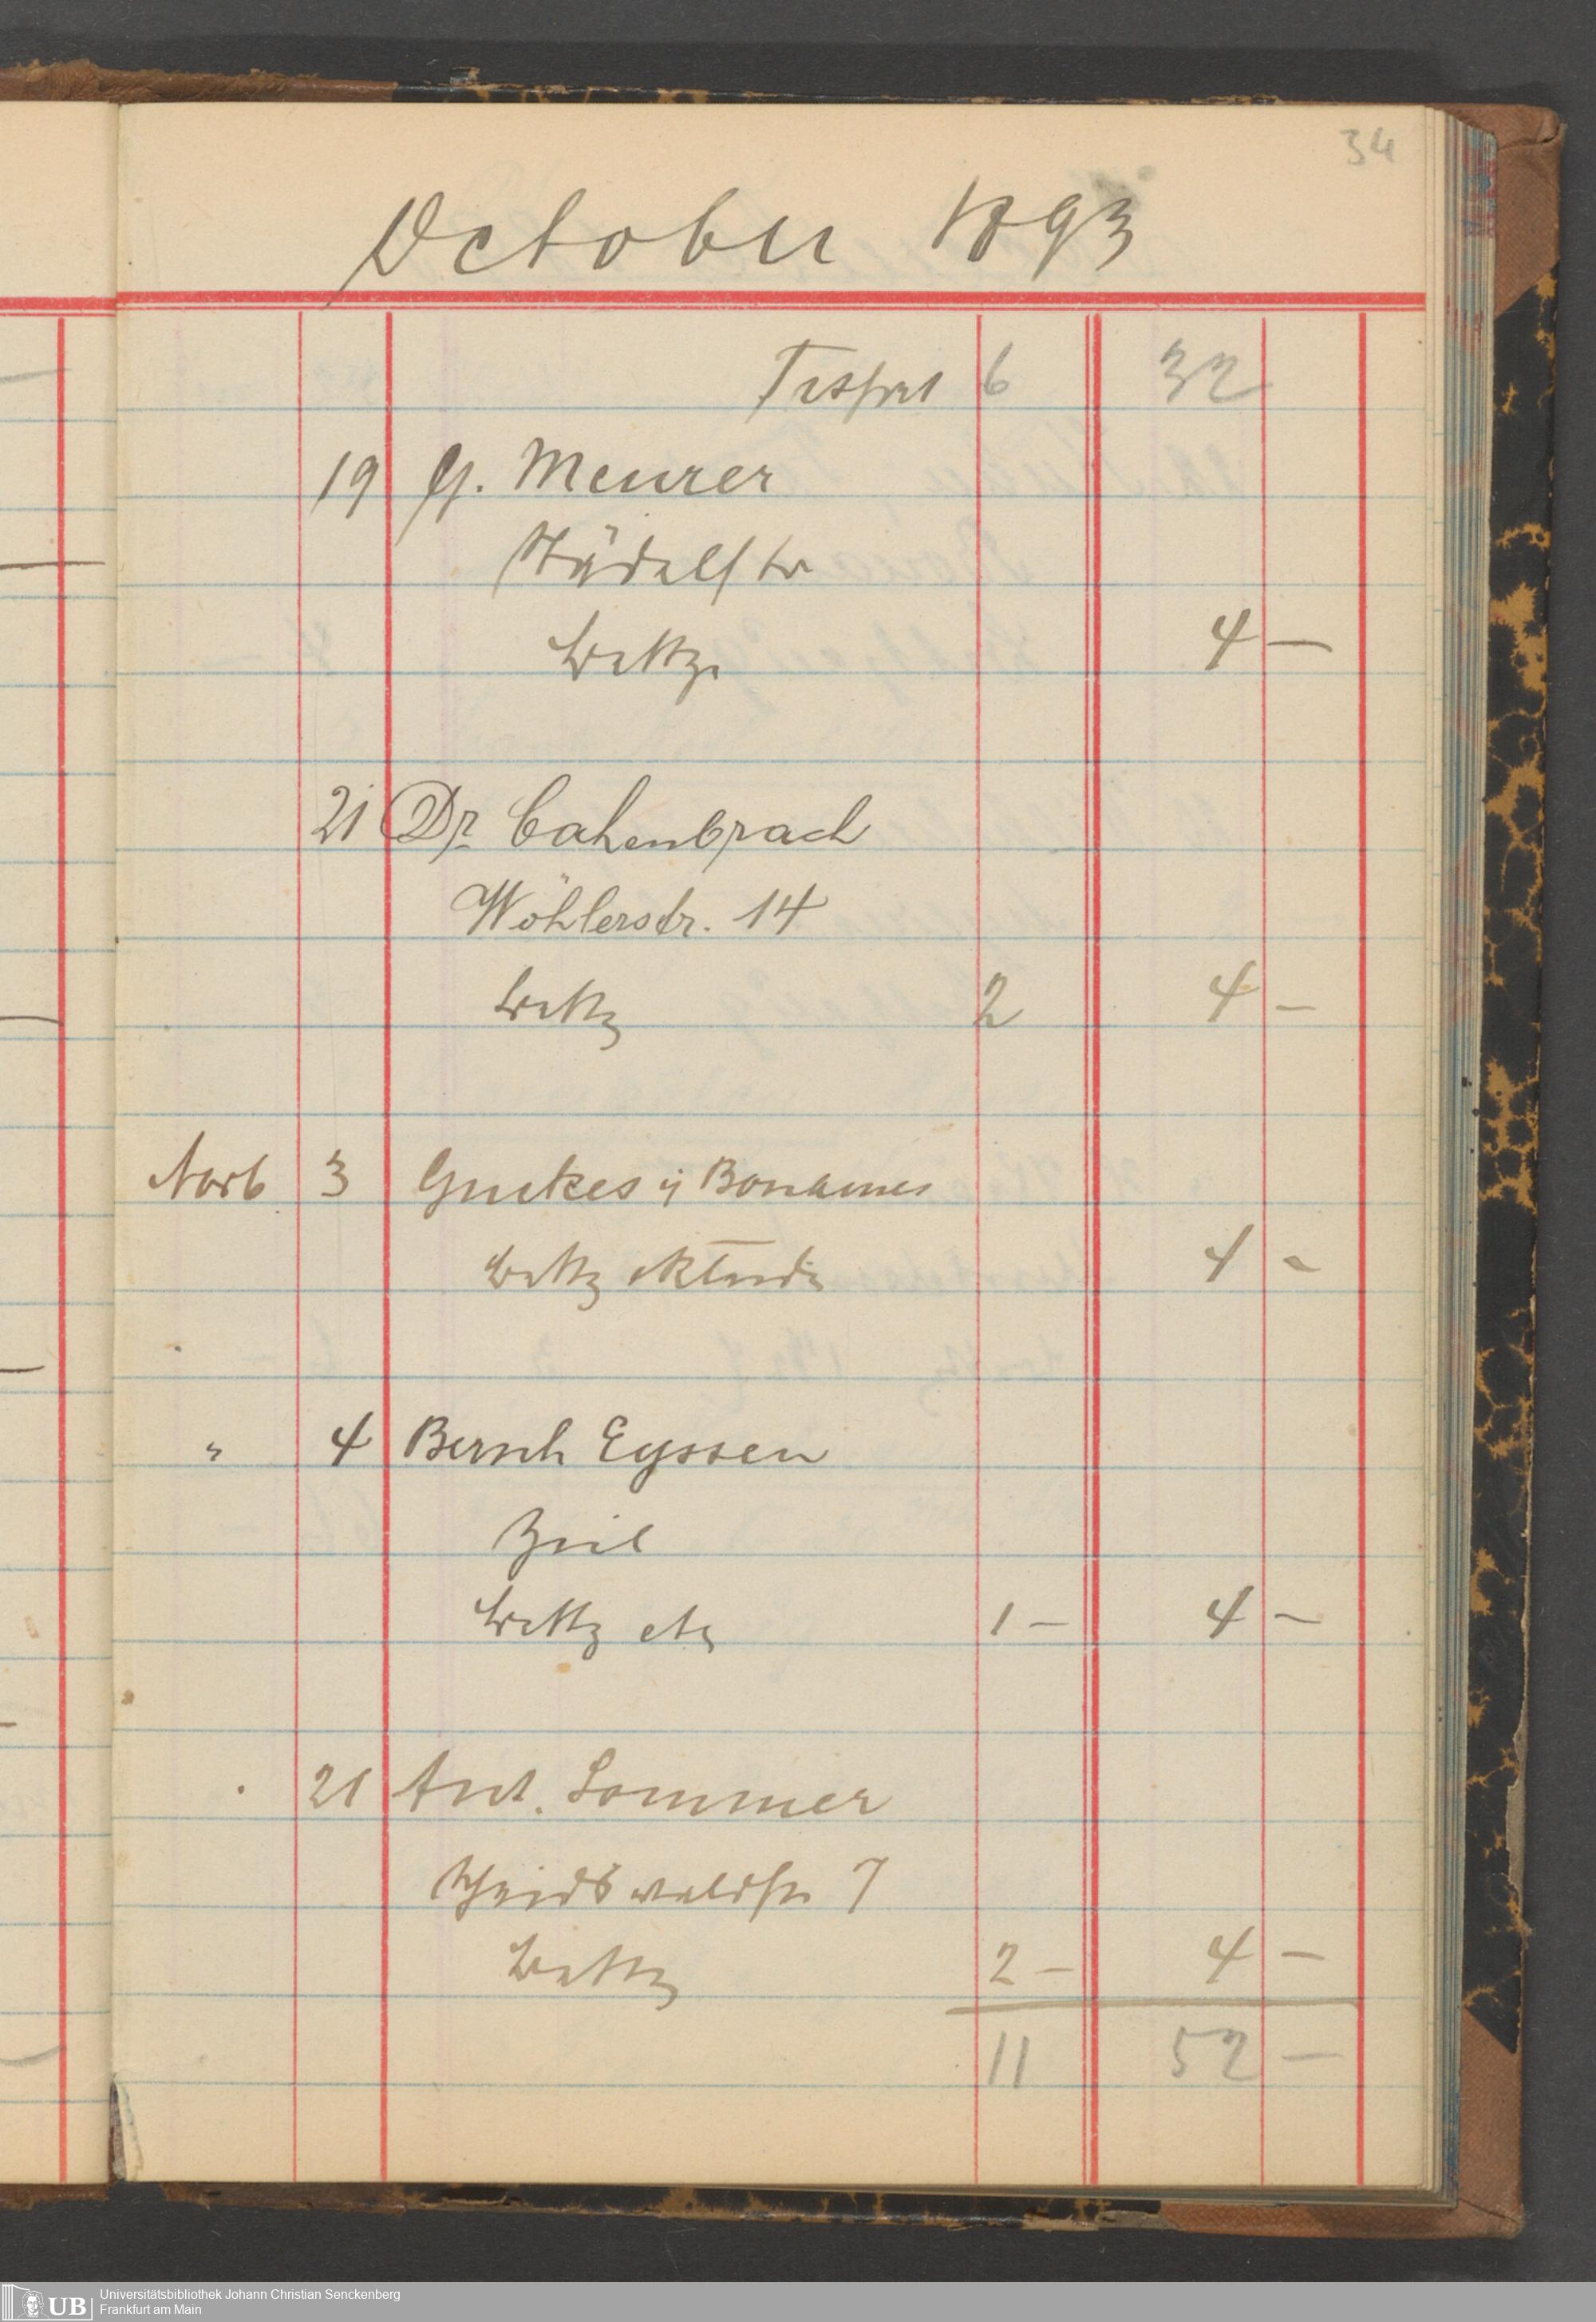 34
October 1893
Transport 6 32
19 G. Meurer
Städelstr
4 —
21 Dr. Cahenbrach
Wöhlerstr. 14
2 4 —
Novb 3 Guckes in Bonames
4 —
" 4 Bernh Eyssen
Zeil
1 — 4 —
21 Ant. Sommer
Scheidswaldstr 7
2 — 4 —
11 52 —
UB Universitätsbibliothek Johann Christian Senckenberg
Frankfurt am Main